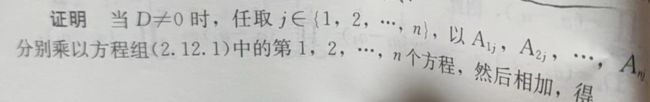 证明 当 D≠0 时，任取 j∈{1，2，…，n}，以 A₁ⱼ，A₂ⱼ，…，Aₙⱼ
分别乘以方程组(2.12.1)中的第 1，2，…，n个方程，然后相加，得